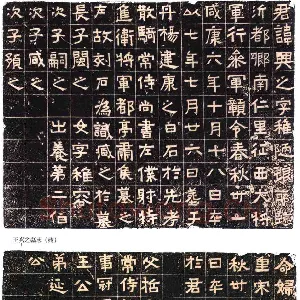 君諱興之字稚陋琅耶臨
沂都鄉南仁里征西大將
軍行參軍贛令春秋卅一
咸康六年十月十八日卒
以七年七月廿六日葬于
丹楊建康之白石於先考
散騎常侍尚書左僕射特
進衛將軍都亭肅侯墓之
左故刻石為識臧之於墓
長子閩之 女字稚容
次子嗣之 出養第二伯
次子咸之
次子預之
王興之墓誌
命婦
重宋
秋卅
日卒
於君
父哲
常侍
王公
弟延
公